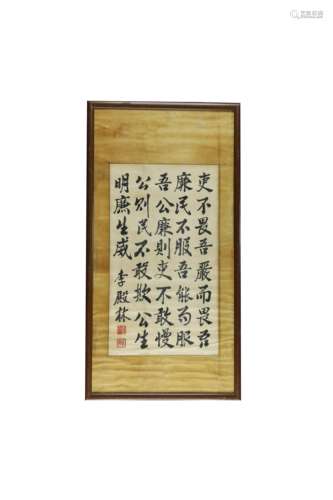 吏不畏吾嚴而畏吾
廉民不服吾能而服
吾公廉則吏不敢慢
公則民不敢欺公生
明廉生威 李殿林